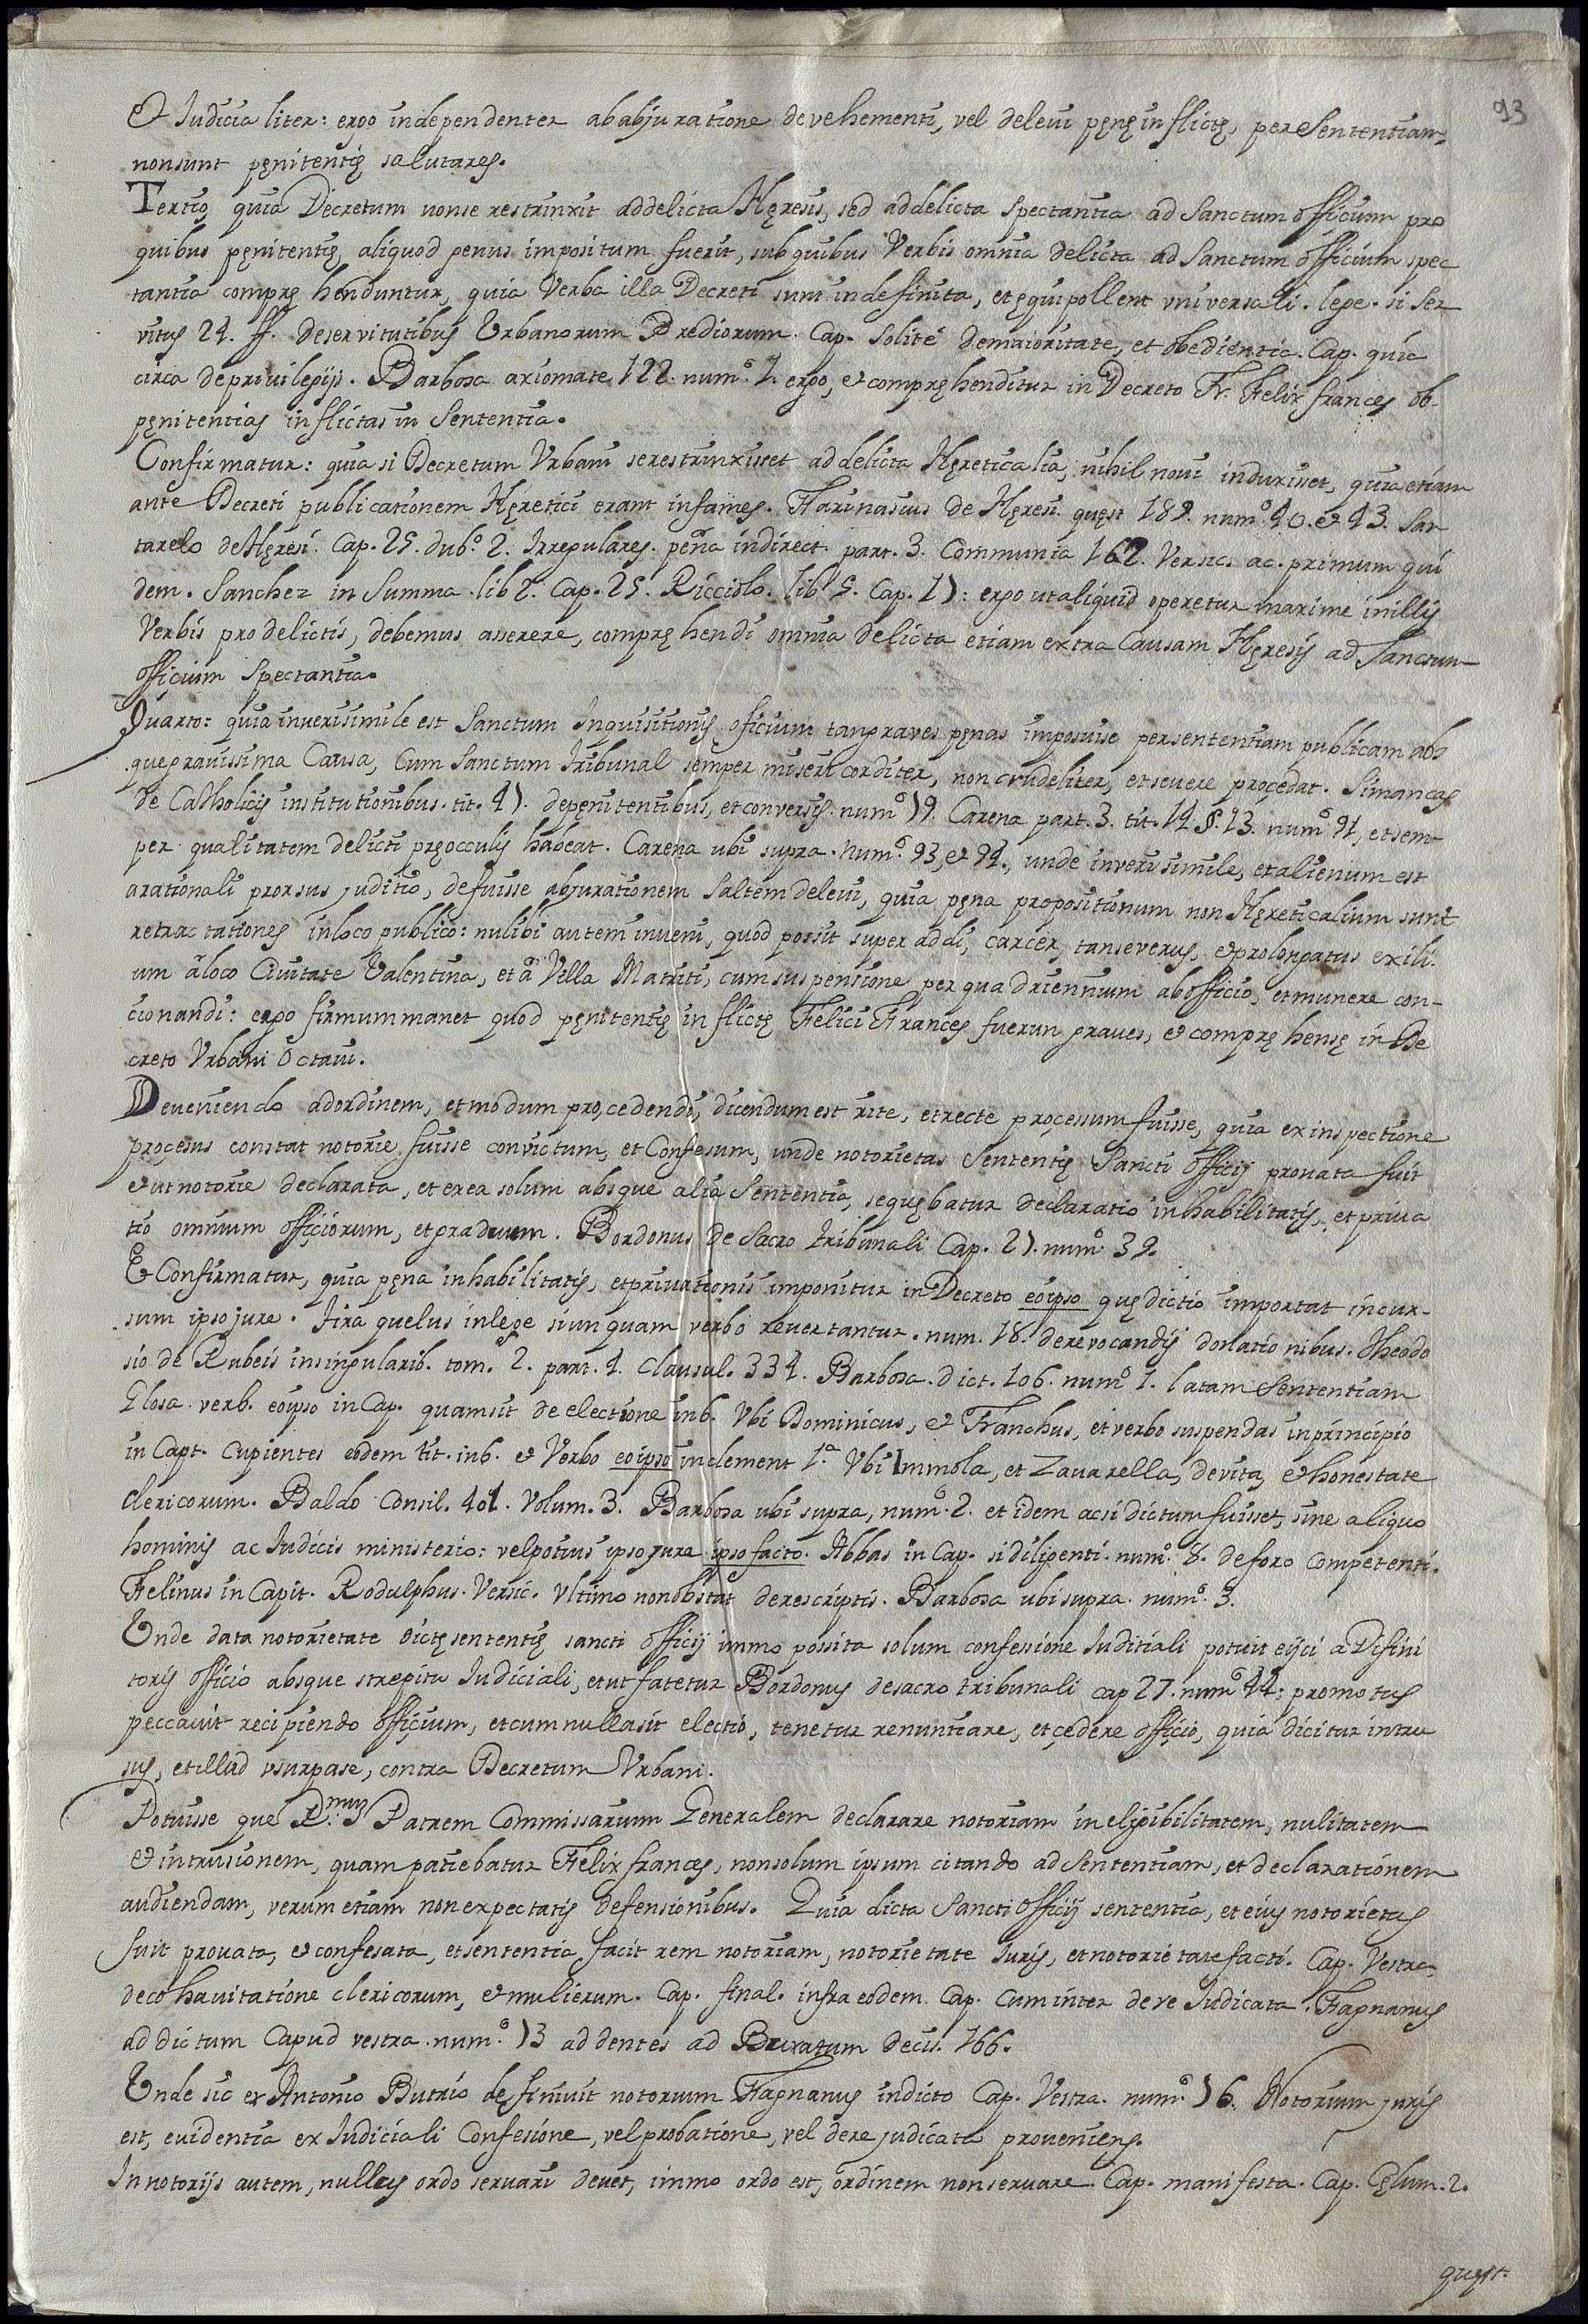 93
Et Iudicialiter: ergo independenter ab abjuratione de vehementi, vel de leui pęnę inflictę, per Sententiam
non sunt pęnitentię salutares.
Tertio, quia Decretum non se restrinxit ad delicta Hęresis, sed ad delicta spectantia ad Sanctum officium pro
quibus pęnitentię, aliquod genus impositum fuerit, sub quibus Verbis omnia delicta ad Sanctum officium spec
tantia compręhenduntur, quia Verba illa Decreti sunt indefinita, et ęquipollent vniversali. lege. si ser
vitus 24. ff. de servitutibus Vrbanorum Prediorum. Cap. solitę de maioritate, et obedientia. Cap. quia
circa de privilegijs. Barbosa axiomate 122. numº. 1. ergo, et compręhenditur in Decreto Fr. Felix frances ob
pęnitentias inflictas in Sententia.
Confirmatur: quia si Decretum Vrbani se restrinxisset ad delicta Hęreticalia, nihil noui induxisset, quia etiam
ante Decreti publicationem Hęretici erant infames. Farinasius de Hęresi. quęst 189. numº. 40. et 43. San
tarelo de Hęresi. Cap. 25. dubº. 2. Irregulares. peña indirect. part. 3. Communia 162. Versic. ac. primum qui
dem. Sanchez in Summa. lib 2. Cap. 25. Ricciolo. lib 5. Cap. 17: ergo ut aliquid operetur maxime in illis
Verbis pro delictis, debemus asserere, compręhendi omnia delicta etiam extra Causam Hęresis ad Sanctum
officium Spectantia.
Quarto: quia inverisimile est Sanctum Inquisitionis oficium tan graves pęnas imposuise per sententiam publicam abs
que grauissima Causa, Cum Sanctum Tribunal semper misericorditer, non crudeliter, et seuere proçedat. Simancas
de Catholicis institutionibus. tit. 47. de pęnitentibus, et conversis. numº 19. Carena part. 3. tit. 14. §. 13. numº 91, et sem
per qualitatem delicti pręocculis habeat. Carena ubi supra. numº. 93, et 94., unde inverisimile, et alienum est
a rationali prorsus juditio, defuisse abjurationem saltem de leui, quia pęna propositionum non Hęreticalium sunt
retractationes in loco publico: nulibi autem inueni, quod possit super addi, carcer tan severus, et prolongatus exili
um à loco Ciuitate Valentina, et à Villa Matriti, cum suspensione per quadriennium ab officio, et munere con-
cionandi: ergo firmum manet quod pęnitentię inflictę Felici Frances fuerun graues, et compręhensę in De
creto Vrbani Octaui.
Deveniendo ad ordinem, et modum proçedendi, dicendum est rite, et recte proçessum fuisse, quia ex inspectione
proçesus constat notorie fuisse convictum, et Confesum, unde notorietas Sententię Sancti Officij prouata fuit
et ut notorie declarata, et ex ea solum absque alia Sententia, sequębatur declaratio inhabilitatis, et priua
tio omnium offiçiorum, et graduum. Bordonus de Sacro tribunali Cap. 27. numº. 39.
Et Confirmatur, quia pęna inhabilitatis, et priuationis imponitur in Decreto eoipso quę dictio importat incur-
sum ipso jure. Tiraquelus in lege siunquam verbo reuertantur. num. 18. de revocandis donationibus. Theodo
sio de Rubeis in singularib. tom. 2. part. 1. Clausul. 334. Barbosa. dict. 106. numº 1. latam Sententiam
Glosa verb. eoipso in Cap. quam sit de electione in 6. Vbi Dominicus, et Franchus, et verbo suspendas in principio
in Capt. Cupientes eodem tit. in 6. et Verbo eoipso in clement 1ª. Vbi Immola, et Zauarella, de vita, et honestate
clericorum. Baldo Consil. 401. Volum. 3. Barbosa ubi supra, numº. 2. et idem acsi dictum fuisset, sine aliquo
hominis ac Iudicis ministerio: vel potius ipso jure ipso facto. Abbas in Cap. si diligenti. numº. 8. de foro competenti.
Felinus in Capit. Rodulphus. Versic. Vltimo non obstat de rescriptis. Barbosa ubi supra. numº. 3.
Vnde data notorietate dictę sententię sancti officij immo possita solum confessione Iuditiali potuit eijci a Difini
toris officio absque strepitu Iudiciali, et ut fatetur Bordonus de sacro tribunali cap 27. numº 44: promotus
peccauit recipiendo offiçium, et cum nulla sit electio, tenetur renuntiare, et çedere offiçio, quia dicitur intru
sus, et illud vsurpase, contra Decretum Vrbani.
Potuisse que R.mum Patrem Commissarium Generalem declarare notoriam ineligibilitatem, nulitatem
et intrusionem, quam patiebatur Felix frances, non solum ipsum citando ad Sententiam, et declarationem
audiendam, verum etiam non expectatis defensionibus. Quia dicta Sancti officij sententia, et eius notorietas
fuit prouata, et confesata, et sententia facit rem notoriam, notorietate Iuris, et notorietate facti. Cap. Vestra,
de cohauitatione clericorum, et mulierum. Cap. final. infra eodem. Cap. Cum inter de re Iudicata. Fagnanus
ad dictum Capud vestra. numº. 13 addentes ad Buratum decis. 166.
Vnde sic ex Antonio Butrio dęfiniuit notorium Fagnanus in dicto Cap. Vestra. numº. 16. Notorium juris
est, euidentia ex Iudiciali Confesione, vel probatione, vel de re judicata proueniens.
In notorijs autem, nullus ordo seruari deuet, immo ordo est, ordinem non seruare. Cap. manifesta. Cap. Çęlum. 2.
quęst.